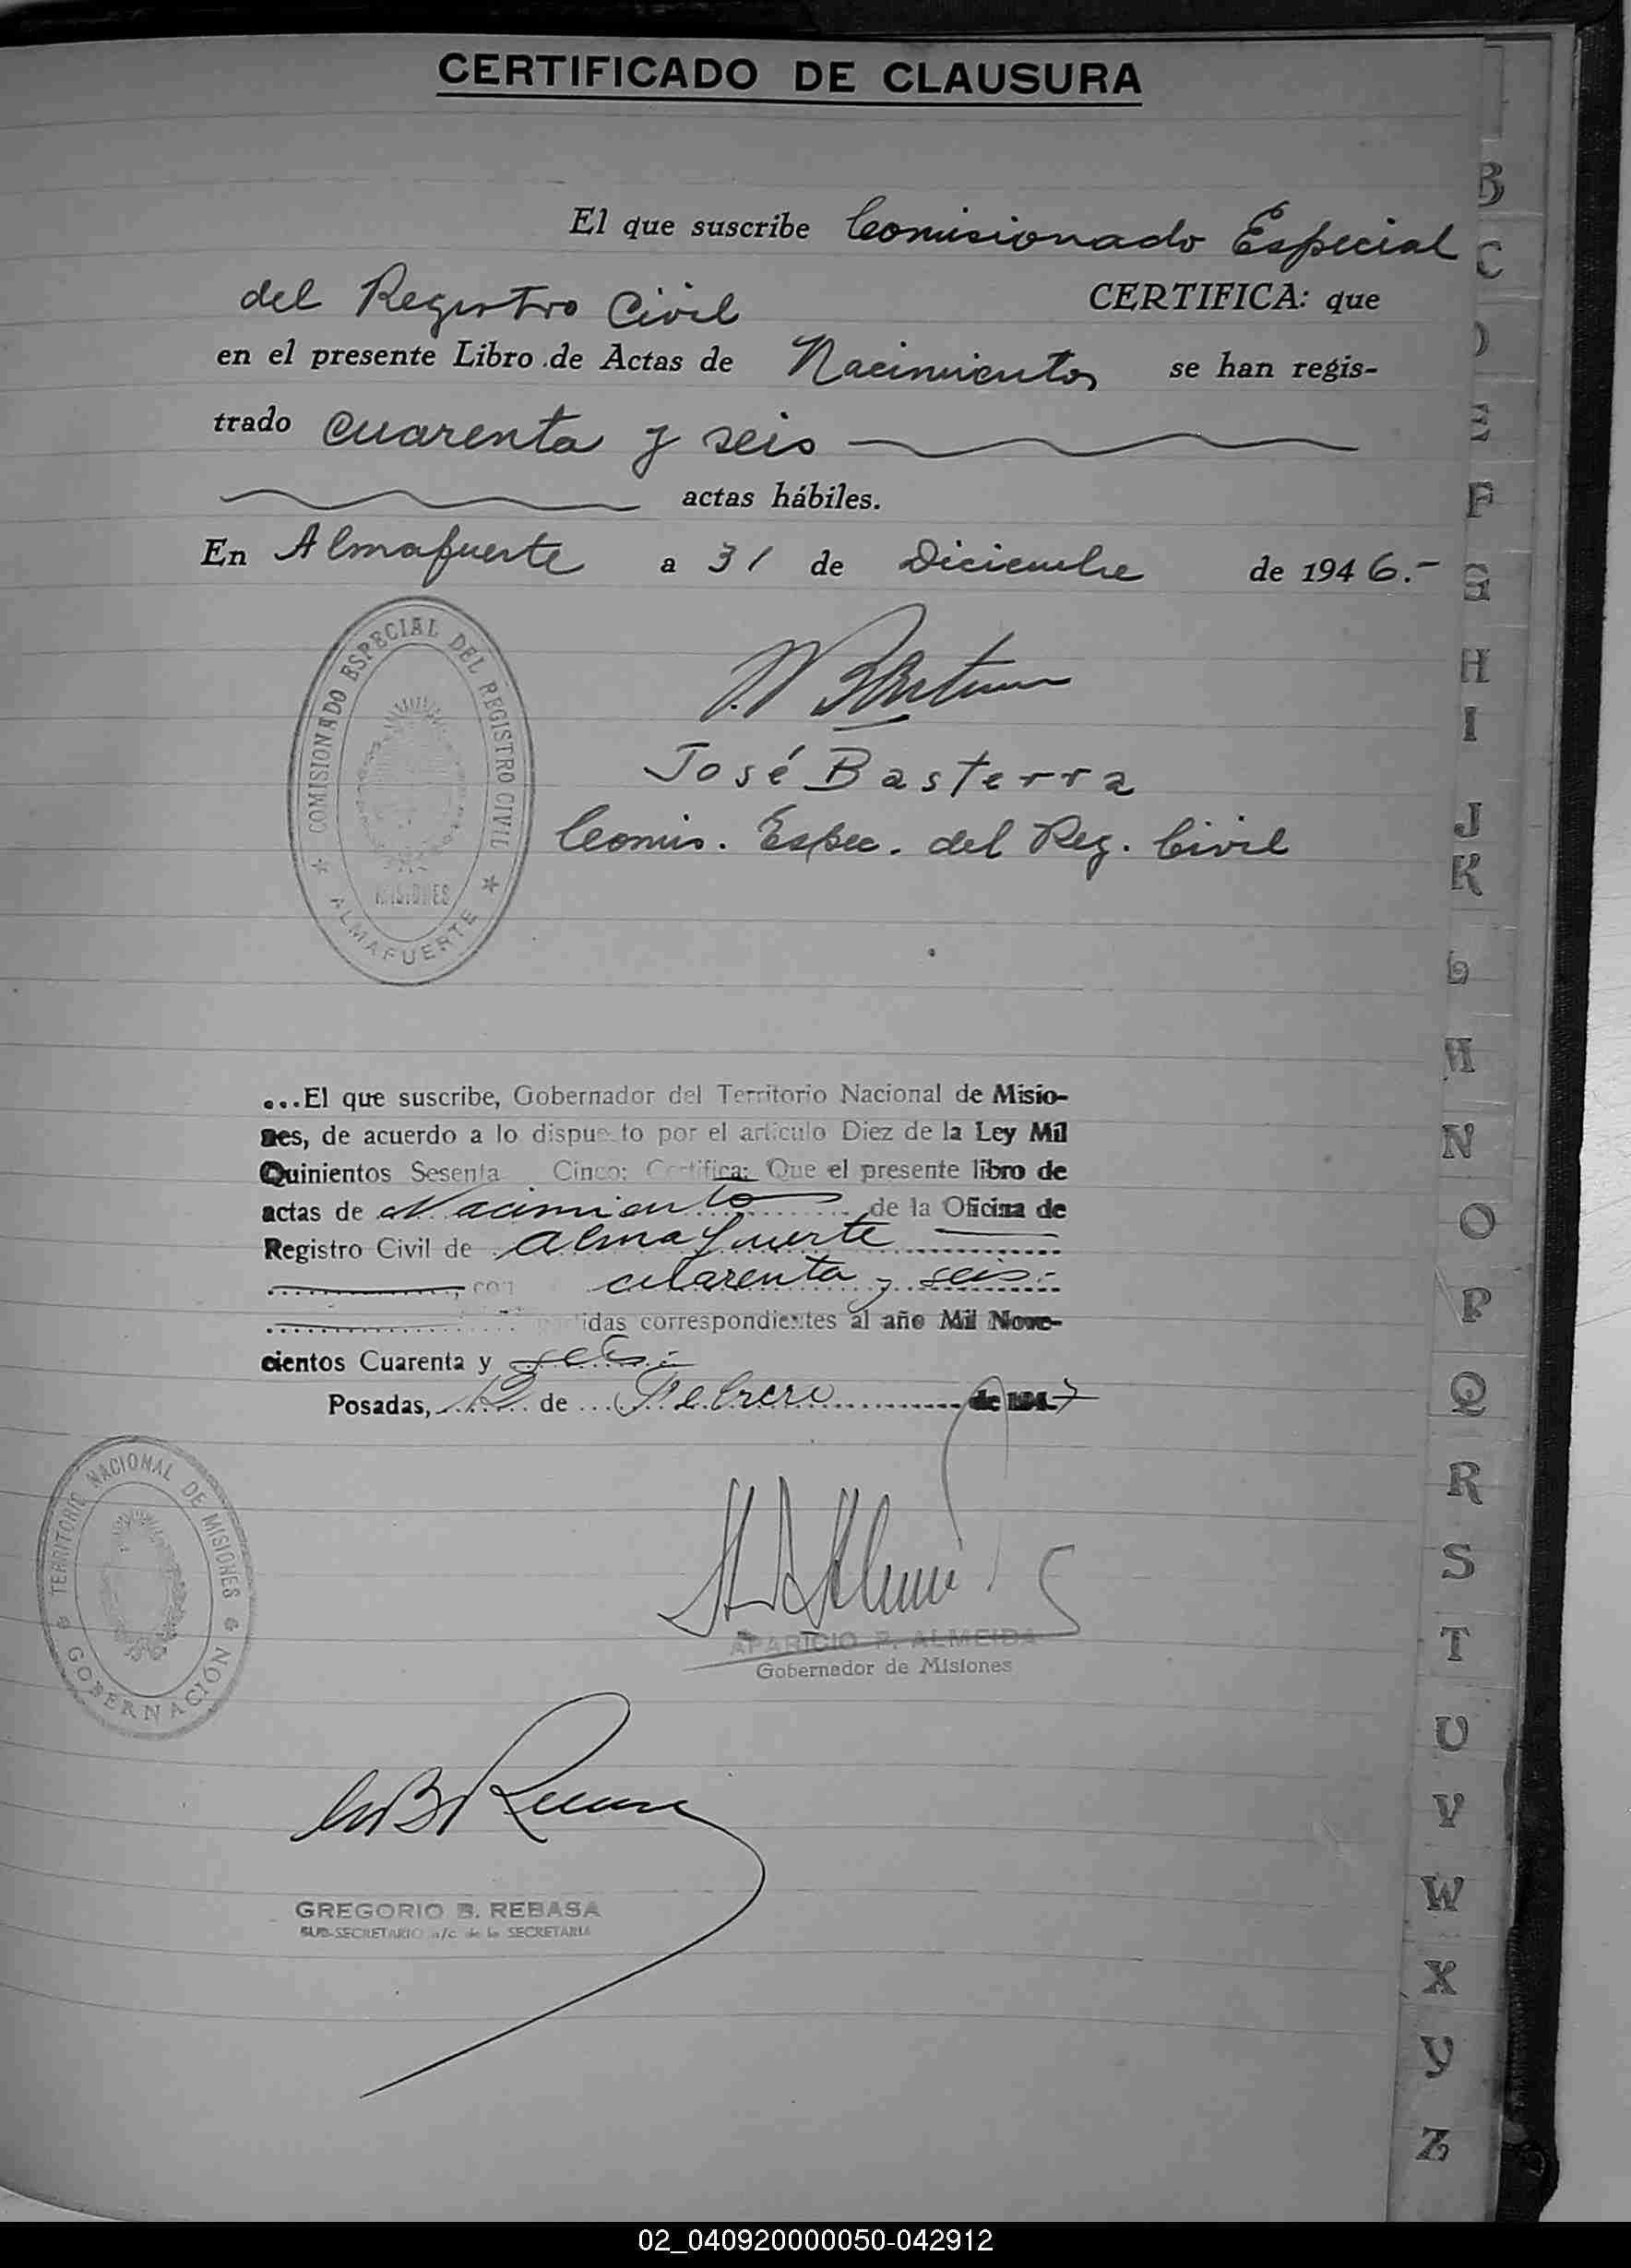 CERTIFICADO DE CLAUSURA
El que suscribe Comisionado Especial
del Registro Civil CERTIFICA: que
en el presente Libro de Actas de Nacimientos se han regis-
trado cuarenta y seis
actas hábiles.
En Almafuerte a 31 de Diciembre de 1946.-
COMISIONADO ESPECIAL DEL REGISTRO CIVIL
MISIONES
ALMAFUERTE
José Basterra
Comis. Espec. del Reg. Civil
...El que suscribe, Gobernador del Territorio Nacional de Misio-
nes, de acuerdo a lo dispuesto por el artículo Diez de la Ley Mil
Quinientos Sesenta Cinco: Certifica: Que el presente libro de
actas de Nacimiento de la Oficina de
Registro Civil de Almafuerte
con cuarenta y seis.-
partidas correspondientes al año Mil Nove-
cientos Cuarenta y seis.-
Posadas, 12 de Febrero de 1947
TERRITORIO NACIONAL DE MISIONES
GOBERNACIÓN
APARICIO P. ALMEIDA
Gobernador de Misiones
GREGORIO B. REBASA
SUB-SECRETARIO a/c de la SECRETARIA
B
C
D
E
F
G
H
I
J
K
L
M
N
O
P
Q
R
S
T
U
V
W
X
Y
Z
02_040920000050-042912